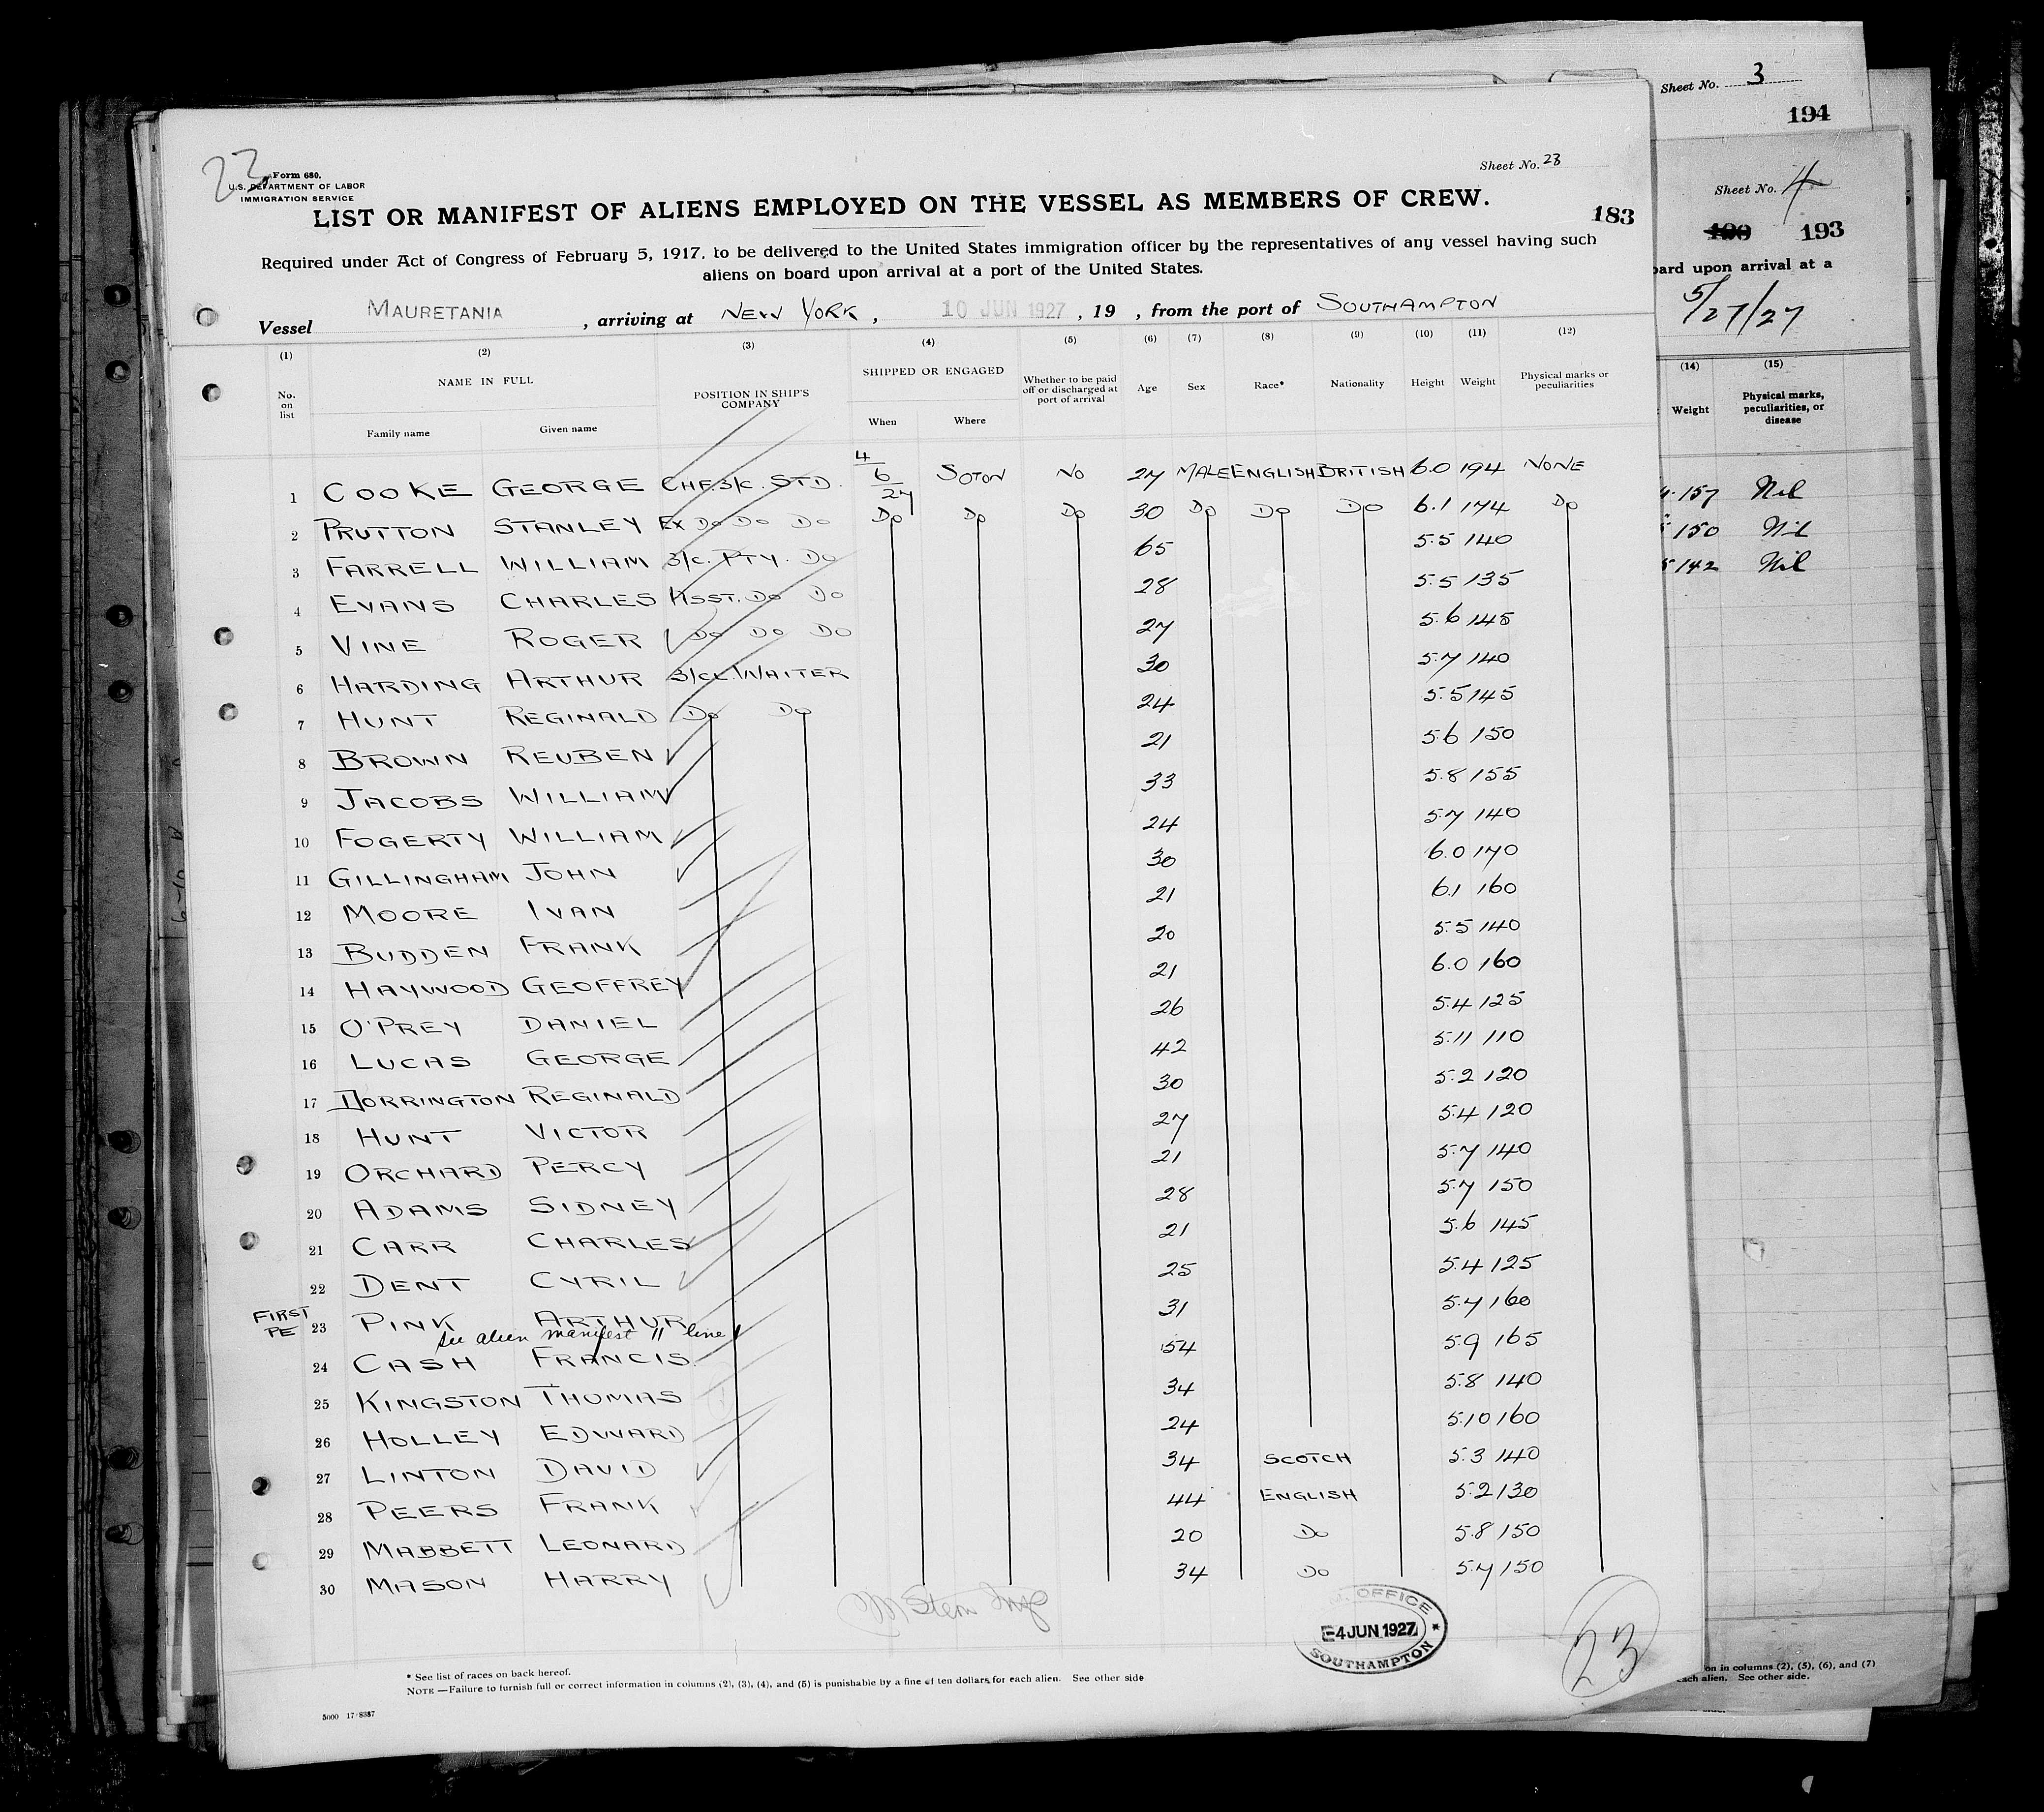 Sheet No. 3
194
Sheet No. 4
190 193
oard upon arrival at a
5/27/27
(14) (15)
Weight Physical marks, peculiarities, or disease
157 Nil
150 Nil
142 Nil
on in columns (2), (5), (6), and (7)
each alien. See other side.
23
Form 680.
U.S. DEPARTMENT OF LABOR
IMMIGRATION SERVICE
Sheet No. 23
LIST OR MANIFEST OF ALIENS EMPLOYED ON THE VESSEL AS MEMBERS OF CREW.
183
Required under Act of Congress of February 5, 1917, to be delivered to the United States immigration officer by the representatives of any vessel having such
aliens on board upon arrival at a port of the United States.
Vessel MAURETANIA, arriving at NEW YORK, 10 JUN 1927, 19 , from the port of SOUTHAMPTON
(1) (2) (3) (4) (5) (6) (7) (8) (9) (10) (11) (12)
No. on list NAME IN FULL POSITION IN SHIP'S COMPANY SHIPPED OR ENGAGED Whether to be paid off or discharged at port of arrival Age Sex Race* Nationality Height Weight Physical marks or peculiarities
Family name Given name When Where
1 COOKE GEORGE CHF. 3/C. STD. 4/6/27 SOTON NO 27 MALE ENGLISH BRITISH 6.0 194 NONE
2 PRUTTON STANLEY EX DO DO DO DO DO DO 30 DO DO DO 6.1 174 DO
3 FARRELL WILLIAM 3/C. PTY. DO 65 5.5 140
4 EVANS CHARLES ASST. DO DO 28 5.5 135
5 VINE ROGER DO DO DO 27 5.6 145
6 HARDING ARTHUR 3/CL. WAITER 30 5.7 140
7 HUNT REGINALD DO DO 24 5.5 145
8 BROWN REUBEN 21 5.6 150
9 JACOBS WILLIAM 33 5.8 155
10 FOGERTY WILLIAM 24 5.7 140
11 GILLINGHAM JOHN 30 6.0 170
12 MOORE IVAN 21 6.1 160
13 BUDDEN FRANK 20 5.5 140
14 HAYWOOD GEOFFREY 21 6.0 160
15 O'PREY DANIEL 26 5.4 125
16 LUCAS GEORGE 42 5.11 110
17 DORRINGTON REGINALD 30 5.2 120
18 HUNT VICTOR 27 5.4 120
19 ORCHARD PERCY 21 5.7 140
20 ADAMS SIDNEY 28 5.7 150
21 CARR CHARLES 21 5.6 145
22 DENT CYRIL 25 5.4 125
FIRST PE 23 PINK ARTHUR 31 5.7 160
see alien manifest 11 line 1
24 CASH FRANCIS. 54 5.9 165
25 KINGSTON THOMAS 34 5.8 140
26 HOLLEY EDWARD 24 5.10 160
27 LINTON DAVID 34 SCOTCH 5.3 140
28 PEERS FRANK 44 ENGLISH 5.2 130
29 MABBETT LEONARD 20 DO 5.8 150
30 MASON HARRY 34 DO 5.7 150
OFFICE
4 JUN 1927
SOUTHAMPTON
23
* See list of races on back hereof.
NOTE —Failure to furnish full or correct information in columns (2), (3), (4), and (5) is punishable by a fine of ten dollars for each alien. See other side